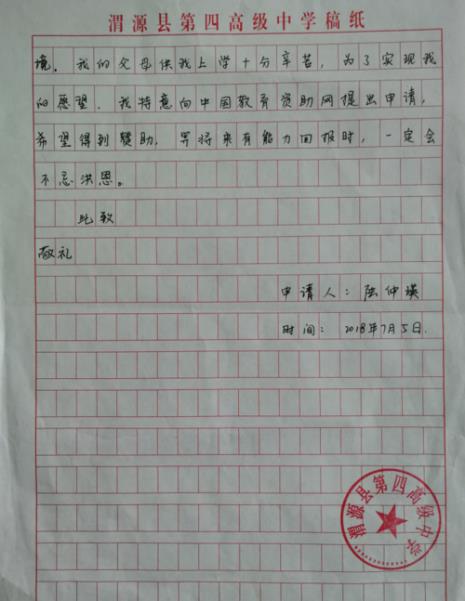 渭源县第四高级中学稿纸
境。我的父母供我上学十分辛苦,为了实现我
的愿望,我特意向中国教育资助网提出申请,
希望得到援助,若将来有能力回报时,一定会
不忘洪恩。
此致
敬礼
申请人:陆仲瑛
时间:2018年7月5日.
渭源县第四高级中学